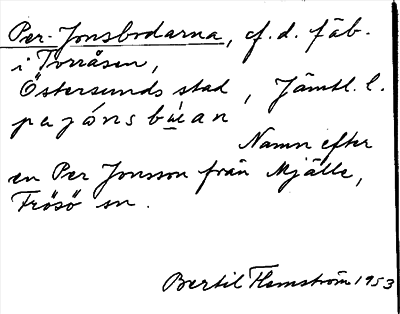 Per-Jonsbodarna, f.d. fäb.
i Torråsen,
Östersunds stad, Jämtl. l.
pejånsbuan
Namn efter
en Per Jonsson från Mjälle,
Frösö sn.
Bertil Flemström 1953